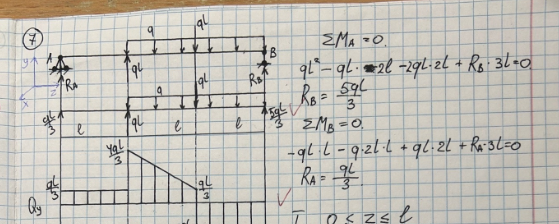 7
q
ql
A
B
y
ql
ql
R_A
R_B
z
x
q
ql/3
5ql/3
l
ql
l
l
4ql/3
ql/3
ql/3
Q_y
ΣM_A = 0.
ql² - ql · 2l - 2ql · 2l + R_B · 3l = 0
R_B = 5ql/3
ΣM_B = 0.
-ql · l - q · 2l · l + ql · 2l + R_A · 3l = 0
R_A = ql/3.
I 0 ≤ z ≤ l